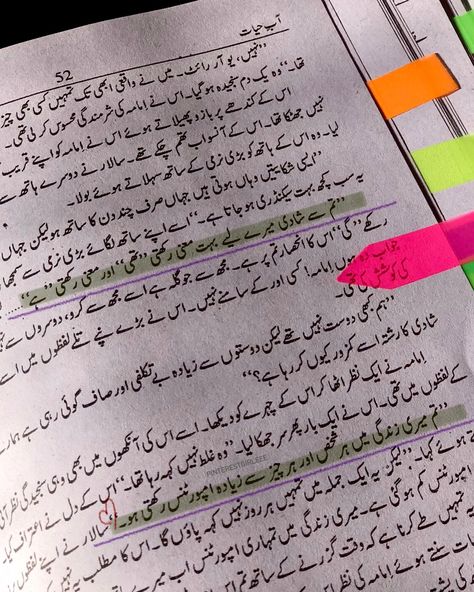 آبِ حیات
52
”نہیں، یو آر رائٹ۔ میں نے واقعی ابھی تک تمہیں کسی بھی چیز
تھا۔“ وہ یک دم سنجیدہ ہو گیا۔ اس نے امامہ کی شرمندگی محسوس کر لی تھی۔
اس کے کندھے پر بازو پھیلاتے ہوئے اس نے امامہ کو اپنے قریب
نہیں جھٹکا تھا۔ اس کے آنسو اب تھم چکے تھے۔ سالار نے دوسرے ہاتھ سے
لیا۔ وہ اس کے ہاتھ کو بڑی نرمی کے ساتھ سہلاتے ہوئے بولا۔
”ایسی شکایتیں وہاں ہوتی ہیں جہاں صرف چند دن کا ساتھ ہو لیکن جہاں
یہ سب کچھ بہت سیکنڈری ہو جاتا ہے۔“ اسے اپنے ساتھ لگائے بڑی نرمی سے سمجھا
”تم سے شادی میرے لیے بہت معنی رکھتی ”تھی“ اور معنی رکھتی ”ہے“....
رکھے ”گی“ اس کا انحصار تم پر ہے۔ مجھ سے جو گلہ ہے اسے مجھ سے کرو، دوسروں سے
جواب دہ ہوں امامہ! کسی اور کے سامنے نہیں۔ اس نے بڑے نپے تلے لفظوں میں اسے
کی کوشش کی تھی۔
”ہم کبھی دوست نہیں تھے لیکن دوستوں سے زیادہ بے تکلفی اور صاف گوئی رہی ہے ہمارے
شادی کا رشتہ اسے کمزور کیوں کر رہا ہے؟“
امامہ نے ایک نظر اٹھا کر اس کے چہرے کو دیکھا۔ اسے اس کی آنکھوں میں بھی وہی سنجیدگی نظر آئی
کے لفظوں میں تھی۔ اس نے ایک بار پھر سر جھکا لیا۔ ”وہ غلط نہیں کہہ رہا تھا۔“ اس کے دل نے اعتراف کیا۔
”تم میری زندگی میں ہر شخص اور ہر چیز سے زیادہ امپورٹنس رکھتی ہو۔“ سالار نے اپنے لفظوں
ہوئے کہا۔ ”لیکن یہ ایک جملہ میں تمہیں ہر روز نہیں کہہ پاؤں گا۔ اس کا مطلب یہ نہیں
امپورٹنس کم ہو گئی ہے۔ میری زندگی میں تمہاری امپورٹنس اب میرے
تمہیں طے کرنا ہے کہ وقت گزرنے کے ساتھ تم اس
بات سنتے ہوئے امامہ کی نظر اس
PINTEREST